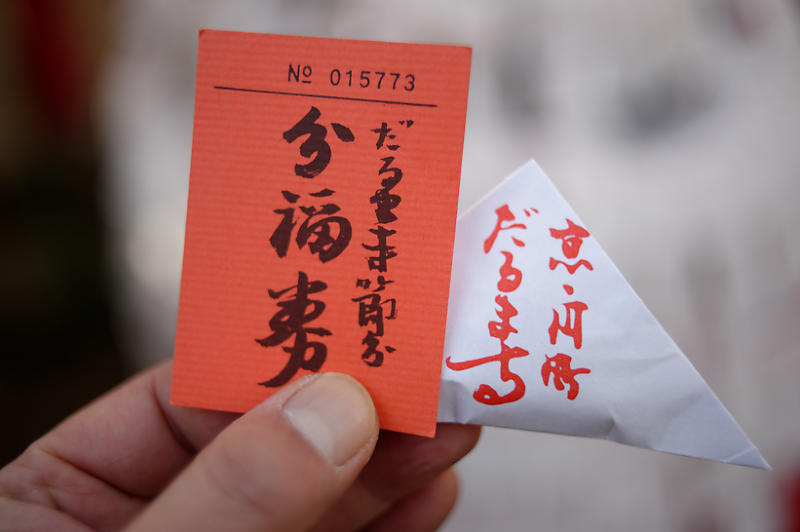 № 015773
だるま寺節分
分福券
京・円町
だるま寺